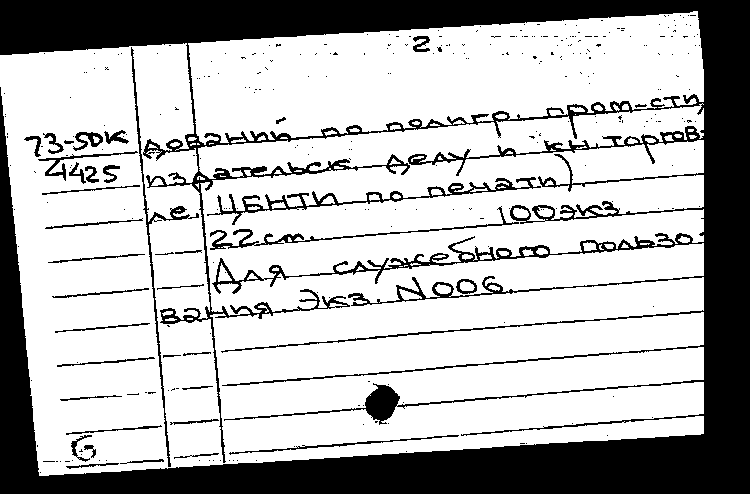 2.
73-5DK дований по полигр. пром-сти,
4425 издательск. делу и кн. торгов-
ле. ЦБНТИ по печати).
22 см. 100 экз.
Для служебного пользо-
вания. Экз. N006.
G